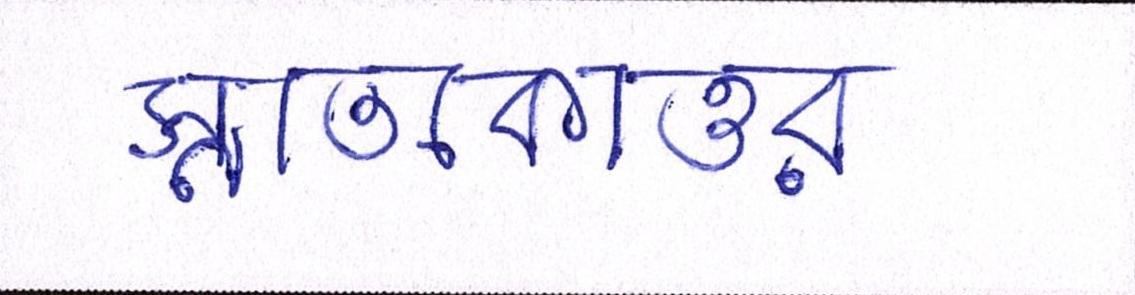 স্নাতকোত্তর